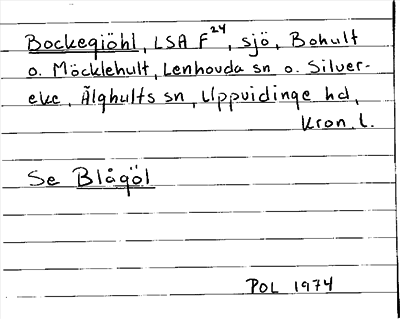 Bockegiöhl, LSA F²⁴, sjö, Bohult
o. Möcklehult, Lenhovda sn o. Silver-
eke, Älghults sn, Uppvidinge hd,
Kron. l.
Se Blågöl
POL 1974